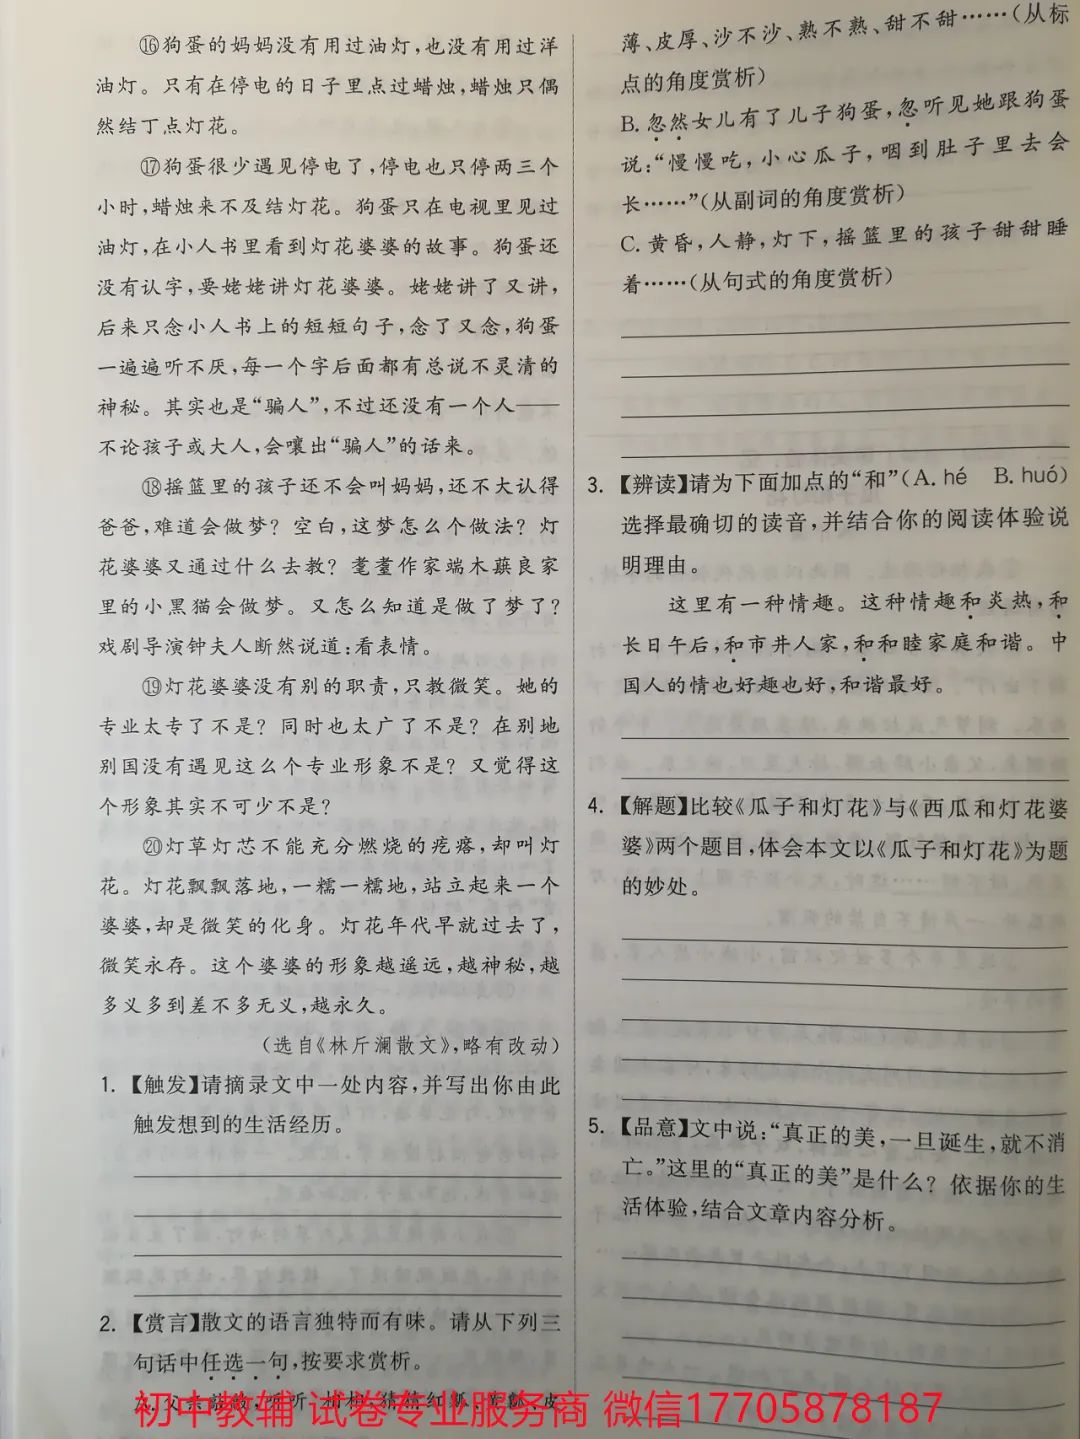 ⑯狗蛋的妈妈没有用过油灯,也没有用过洋
油灯。只有在停电的日子里点过蜡烛,蜡烛只偶
然结丁点灯花。
⑰狗蛋很少遇见停电了,停电也只停两三个
小时,蜡烛来不及结灯花。狗蛋只在电视里见过
油灯,在小人书里看到灯花婆婆的故事。狗蛋还
没有认字,要姥姥讲灯花婆婆。姥姥讲了又讲,
后来只念小人书上的短短句子,念了又念,狗蛋
一遍遍听不厌,每一个字后面都有总说不灵清的
神秘。其实也是“骗人”,不过还没有一个人——
不论孩子或大人,会嚷出“骗人”的话来。
⑱摇篮里的孩子还不会叫妈妈,还不大认得
爸爸,难道会做梦?空白,这梦怎么个做法?灯
花婆婆又通过什么去教?耄耋作家端木蕻良家
里的小黑猫会做梦。又怎么知道是做了梦了?
戏剧导演钟夫人断然说道:看表情。
⑲灯花婆婆没有别的职责,只教微笑。她的
专业太专了不是?同时也太广了不是?在别地
别国没有遇见这么个专业形象不是?又觉得这
个形象其实不可少不是?
⑳灯草灯芯不能充分燃烧的疙瘩,却叫灯
花。灯花飘飘落地,一糯一糯地,站立起来一个
婆婆,却是微笑的化身。灯花年代早就过去了,
微笑永存。这个婆婆的形象越遥远,越神秘,越
多义多到差不多无义,越永久。
(选自《林斤澜散文》,略有改动)
1. 【触发】请摘录文中一处内容,并写出你由此
触发想到的生活经历。
2. 【赏言】散文的语言独特而有味。请从下列三
句话中任选一句,按要求赏析。
A. 父亲敲敲,听听,相相,猜猜红瓤、黄瓤、皮
初中教辅 试卷专业服务商 微信17705878187
薄、皮厚、沙不沙、熟不熟、甜不甜……(从标
点的角度赏析)
B. 忽然女儿有了儿子狗蛋,忽听见她跟狗蛋
说:“慢慢吃,小心瓜子,咽到肚子里去会
长……”(从副词的角度赏析)
C. 黄昏,人静,灯下,摇篮里的孩子甜甜睡
着……(从句式的角度赏析)
3. 【辨读】请为下面加点的“和”(A. hé B. huó)
选择最确切的读音,并结合你的阅读体验说
明理由。
这里有一种情趣。这种情趣和炎热,和
长日午后,和市井人家,和和睦家庭和谐。中
国人的情也好趣也好,和谐最好。
4. 【解题】比较《瓜子和灯花》与《西瓜和灯花婆
婆》两个题目,体会本文以《瓜子和灯花》为题
的妙处。
5. 【品意】文中说:“真正的美,一旦诞生,就不消
亡。”这里的“真正的美”是什么?依据你的生
活体验,结合文章内容分析。